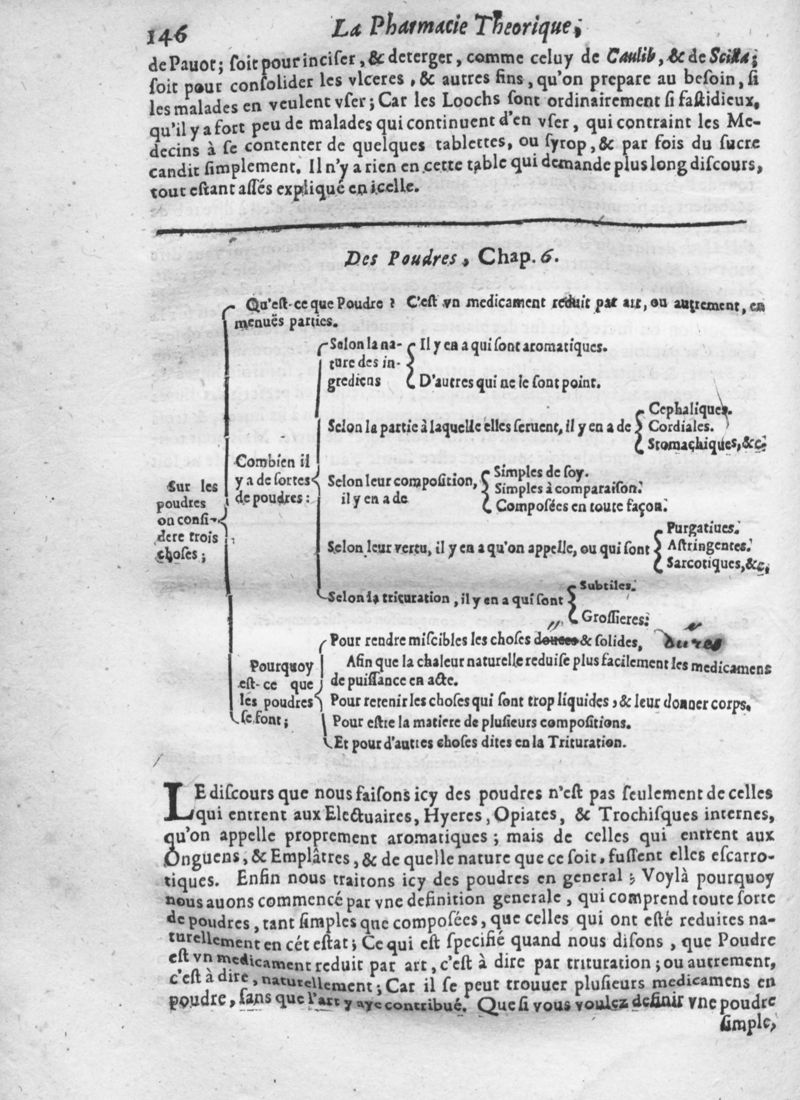 146 La Pharmacie Theorique,
de Pauot; ſoit pour inciſer, & deterger, comme celuy de Caulib, & de Scilla;
ſoit pour conſolider les vlceres, & autres fins, qu'on prepare au beſoin, ſi
les malades en veulent vſer; Car les Loochs ſont ordinairement ſi faſtidieux,
qu'il y a fort peu de malades qui continuent d'en vſer, qui contraint les Me-
decins à ſe contenter de quelques tablettes, ou ſyrop, & par fois du ſucre
candit ſimplement. Il n'y a rien en cette table qui demande plus long diſcours,
tout eſtant aſſés expliqué en icelle.
Des Poudres, Chap. 6.
Sur les
poudres
on conſi-
dere trois
choſes;
Qu'eſt-ce que Poudre? C'eſt vn medicament reduit par art, ou autrement, en
menuës parties.
Combien il
y a de ſortes
de poudres:
Selon la na-
ture des in-
grediens
Il y en a qui ſont aromatiques.
D'autres qui ne le ſont point.
Selon la partie à laquelle elles ſeruent, il y en a de
Cephaliques.
Cordiales.
Stomachiques, &c.
Selon leur compoſition,
il y en a de
Simples de ſoy.
Simples à comparaiſon.
Compoſées en toute façon.
Selon leur vertu, il y en a qu'on appelle, ou qui ſont
Purgatiues.
Aſtringentes.
Sarcotiques, &c.
Selon la trituration, il y en a qui ſont
Subtiles.
Groſſieres.
Pourquoy
eſt-ce que
les poudres
ſe font;
Pour rendre miſcibles les choſes douces & ſolides, dures
Afin que la chaleur naturelle reduiſe plus facilement les medicamens
de puiſſance en acte.
Pour retenir les choſes qui ſont trop liquides, & leur donner corps.
Pour eſtre la matiere de pluſieurs compoſitions.
Et pour d'autres choſes dites en la Trituration.
LE diſcours que nous faiſons icy des poudres n'eſt pas ſeulement de celles
qui entrent aux Electuaires, Hyeres, Opiates, & Trochiſques internes,
qu'on appelle proprement aromatiques; mais de celles qui entrent aux
Onguens, & Emplâtres, & de quelle nature que ce ſoit, fuſſent elles eſcarro-
tiques. Enfin nous traitons icy des poudres en general; Voylà pourquoy
nous auons commencé par vne definition generale, qui comprend toute ſorte
de poudres, tant ſimples que compoſées, que celles qui ont eſté reduites na-
turellement en cét eſtat; Ce qui eſt ſpecifié quand nous diſons, que Poudre
eſt vn medicament reduit par art, c'eſt à dire par trituration; ou autrement,
c'eſt à dire, naturellement; Car il ſe peut trouuer pluſieurs medicamens en
poudre, ſans que l'art y aye contribué. Que ſi vous voulez definir vne poudre
ſimple,